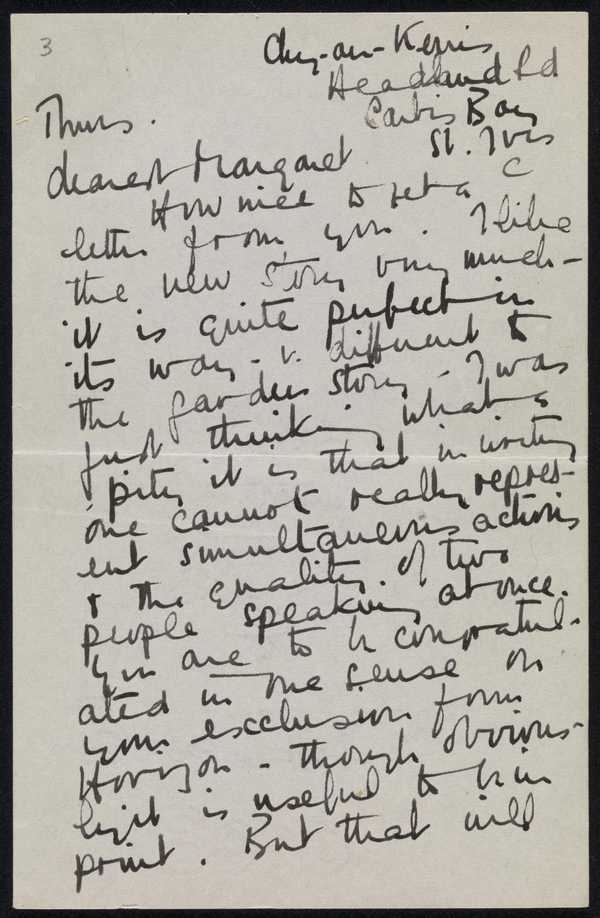 3
Chy-an-Kerris
Headland Rd
Carbis Bay
St. Ives
C
Thurs.
dearest Margaret
How nice to get a
letter from you. I like
the new story very much -
it is quite perfect in
its way - v. different to
the garden story - I was
just thinking what a
pity it is that in writing
one cannot really repres-
ent simultaneous actions
& the quality of two
people speaking at once.
You are to be congratul-
ated in one sense on
your exclusion from
Horizon - though obvious-
ly it is useful to be in
print. But that will